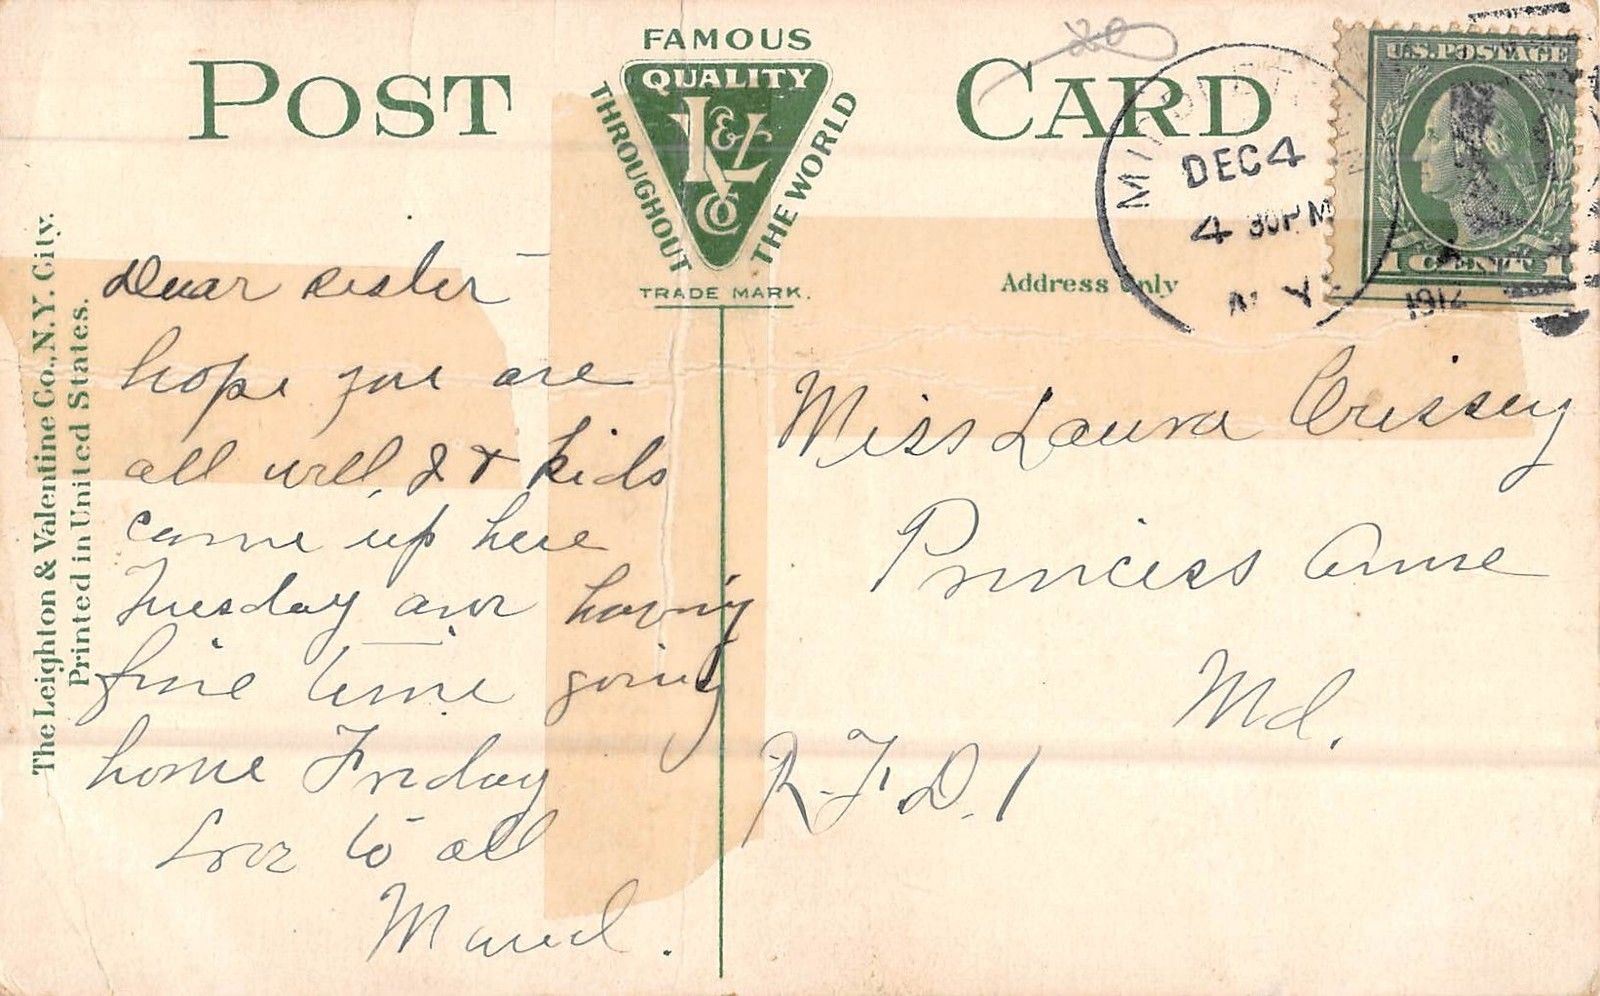 POST CARD
FAMOUS
QUALITY
L&V
Co
THROUGHOUT
THE WORLD
TRADE MARK.
The Leighton & Valentine Co., N.Y. City.
Printed in United States.
Dear sister
hope you are
all well, I & kids
came up here
Tuesday are having
fine time going
home Friday
Love to all
Maud.
20
DEC 4
4 30 PM
N.Y.
1912
U.S. POSTAGE
1 CENT 1
Address Only
Miss Laura Crissey
Princess Anne
Md.
R.F.D. 1